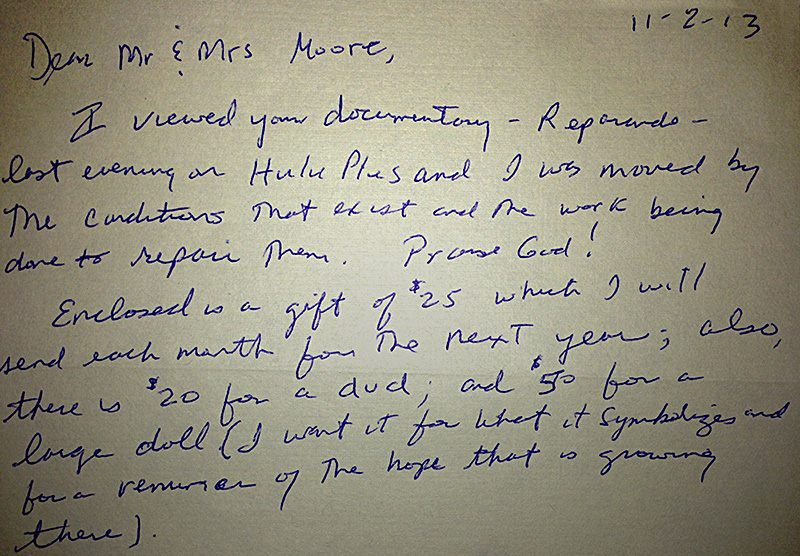 11-2-13
Dear Mr & Mrs Moore,
I viewed your documentary - Reparando -
last evening on Hulu Plus and I was moved by
the conditions that exist and the work being
done to repair them. Praise God!
Enclosed is a gift of $25 which I will
send each month for the next year; also,
there is $20 for a dvd; and $50 for a
large doll (I want it for what it symbolizes and
for a of the hope that is growing
there).